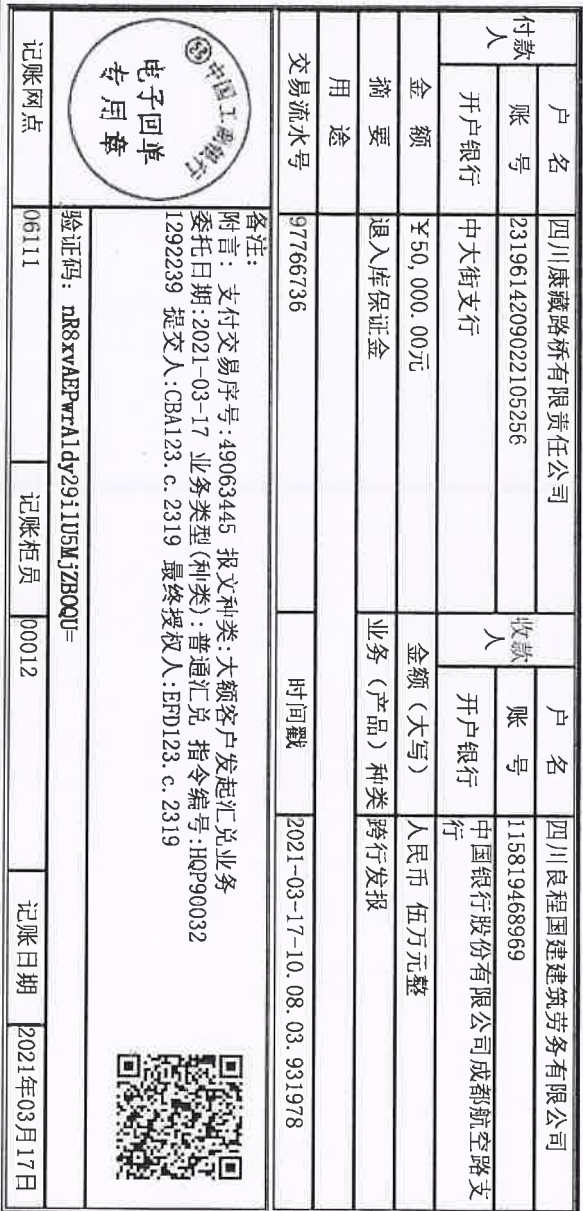 付款人 户 名 四川康藏路桥有限责任公司 收款人 户 名 四川良程国建建筑劳务有限公司
账 号 2319614209022105256 账 号 115819468969
开户银行 中大街支行 开户银行 中国银行股份有限公司成都航空路支行
金 额 ¥50,000.00元 金额（大写） 人民币 伍万元整
摘 要 退入库保证金 业务（产品）种类 跨行发报
用 途
交易流水号 97766736 时间戳 2021-03-17-10.08.03.931978
中国工商银行
电子回单
专用章
备注：
附言：支付交易序号:49063445 报文种类:大额客户发起汇兑业务
委托日期:2021-03-17 业务类型(种类):普通汇兑 指令编号:HQP90032
1292239 提交人:CBA123.c.2319 最终授权人:EFD123.c.2319
验证码：nR8xvAEPwrA1dy29i1U5MjZBOQU=
记账网点 06111 记账柜员 00012 记账日期 2021年03月17日